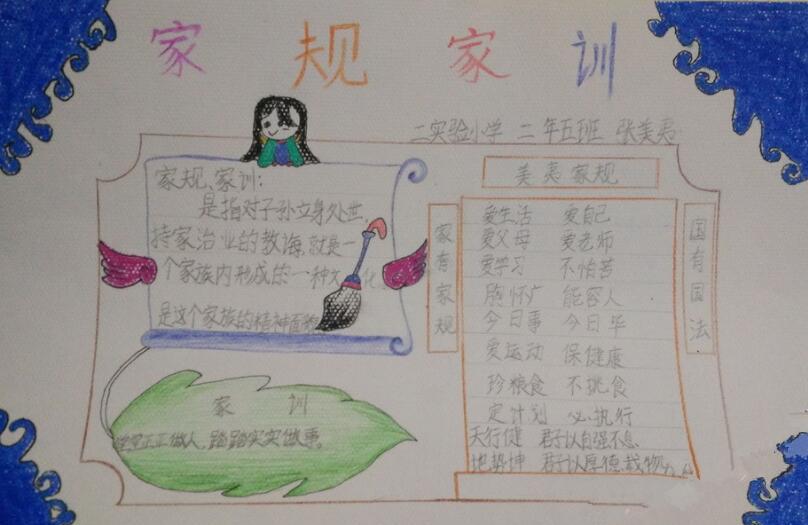 家规家训
二实验小学 二年五班 张美
家规、家训:
是指对子孙立身处世,
持家治业的教诲,就是一
个家族内形成的一种文化
是这个家族的精神面
家训
堂堂正正做人,踏踏实实做事。
家有家规
美 家规
爱生活 爱自己
爱父母 爱老师
爱学习 不怕苦
胸怀广 能容人
今日事 今日毕
爱运动 保健康
珍粮食 不挑食
定计划 必执行
天行健 君子以自强不息
地势坤 君子以厚德载物
国有国法